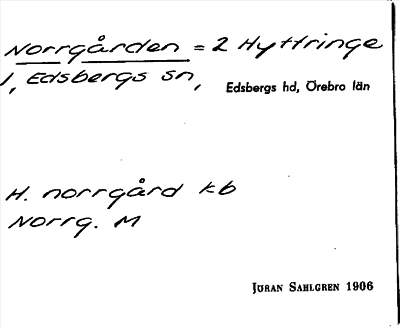 Norrgården = 2 Hyttringe
1, Edsbergs sn, Edsbergs hd, Örebro län
H. norrgård kb
Norrg. M
Jöran Sahlgren 1906